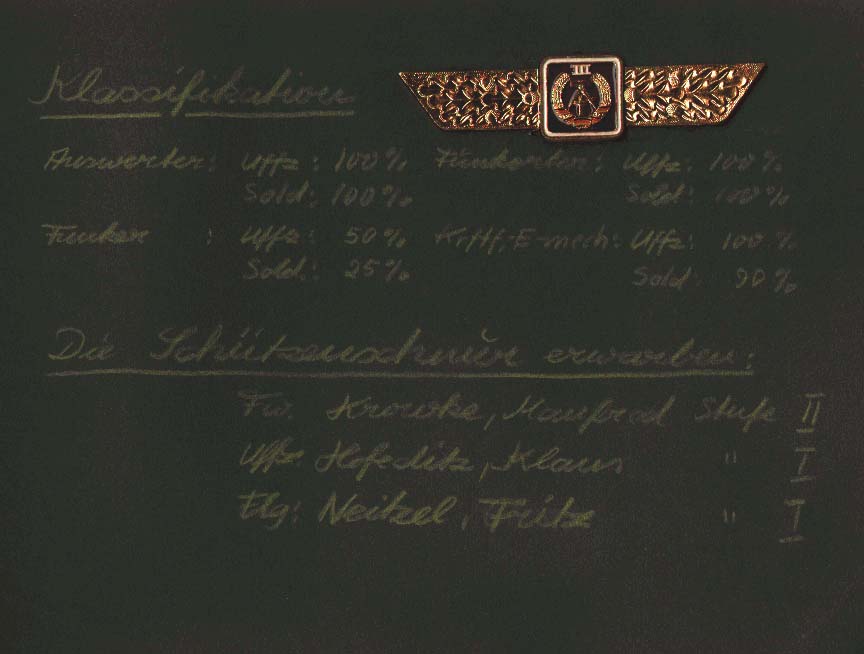 III
Klassifikation
Auswerter: Uffz: 100% Funkorter: Uffz: 100%
Sold: 100% Sold: 100%
Funker : Uffz: 50% Uffz: 100%
Sold: 25% Sold: 90%
Die Schützenschnur erwarben:
Fw. Manfred Stufe II
Uffz. Hofeditz, Klaus " I
Flg: Neitzel, Fritz " I